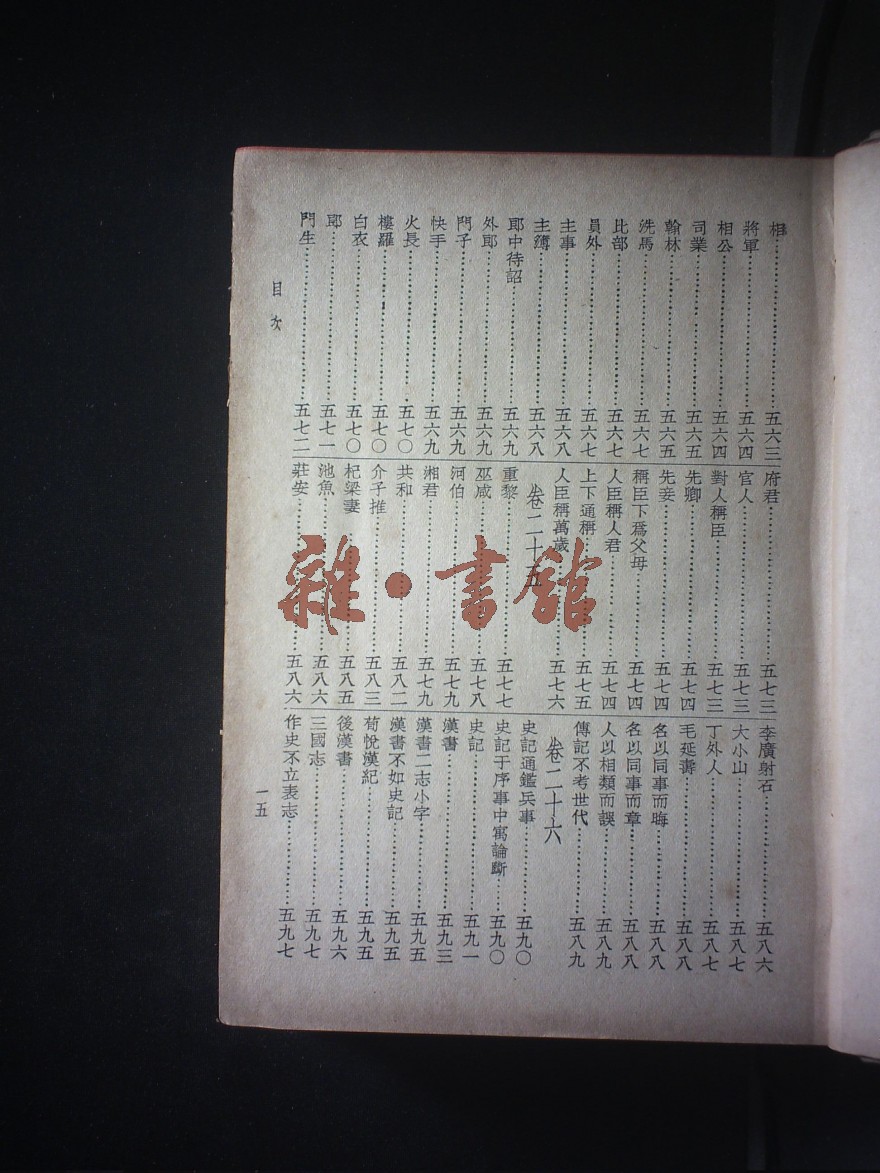 相……五六三
將軍……五六四
相公……五六四
司業……五六五
翰林……五六五
洗馬……五六七
比部……五六七
員外……五六七
主事……五六八
主簿……五六八
郎中待詔……五六九
外郎……五六九
門子……五六九
快手……五六九
火長……五七〇
樓羅……五七〇
白衣……五七〇
郎……五七一
門生……五七二
府君……五七三
官人……五七三
對人稱臣……五七三
先卿……五七四
先妾……五七四
稱臣下爲父母……五七四
人臣稱人君……五七四
上下通稱……五七五
人臣稱萬歲……五七六
卷二十五
重黎……五七七
巫咸……五七八
河伯……五七九
湘君……五七九
共和……五八二
介子推……五八三
杞梁妻……五八五
池魚……五八六
莊安……五八六
李廣射石……五八六
大小山……五八七
丁外人……五八七
毛延壽……五八八
名以同事而晦……五八八
名以同事而章……五八八
人以相類而誤……五八九
傳記不考世代……五八九
卷二十六
史記通鑑兵事……五九〇
史記于序事中寓論斷……五九〇
史記……五九一
漢書……五九三
漢書二志小字……五九五
漢書不如史記……五九五
荀悅漢紀……五九五
後漢書……五九六
三國志……五九七
作史不立表志……五九七
目次
一五
雜·書館